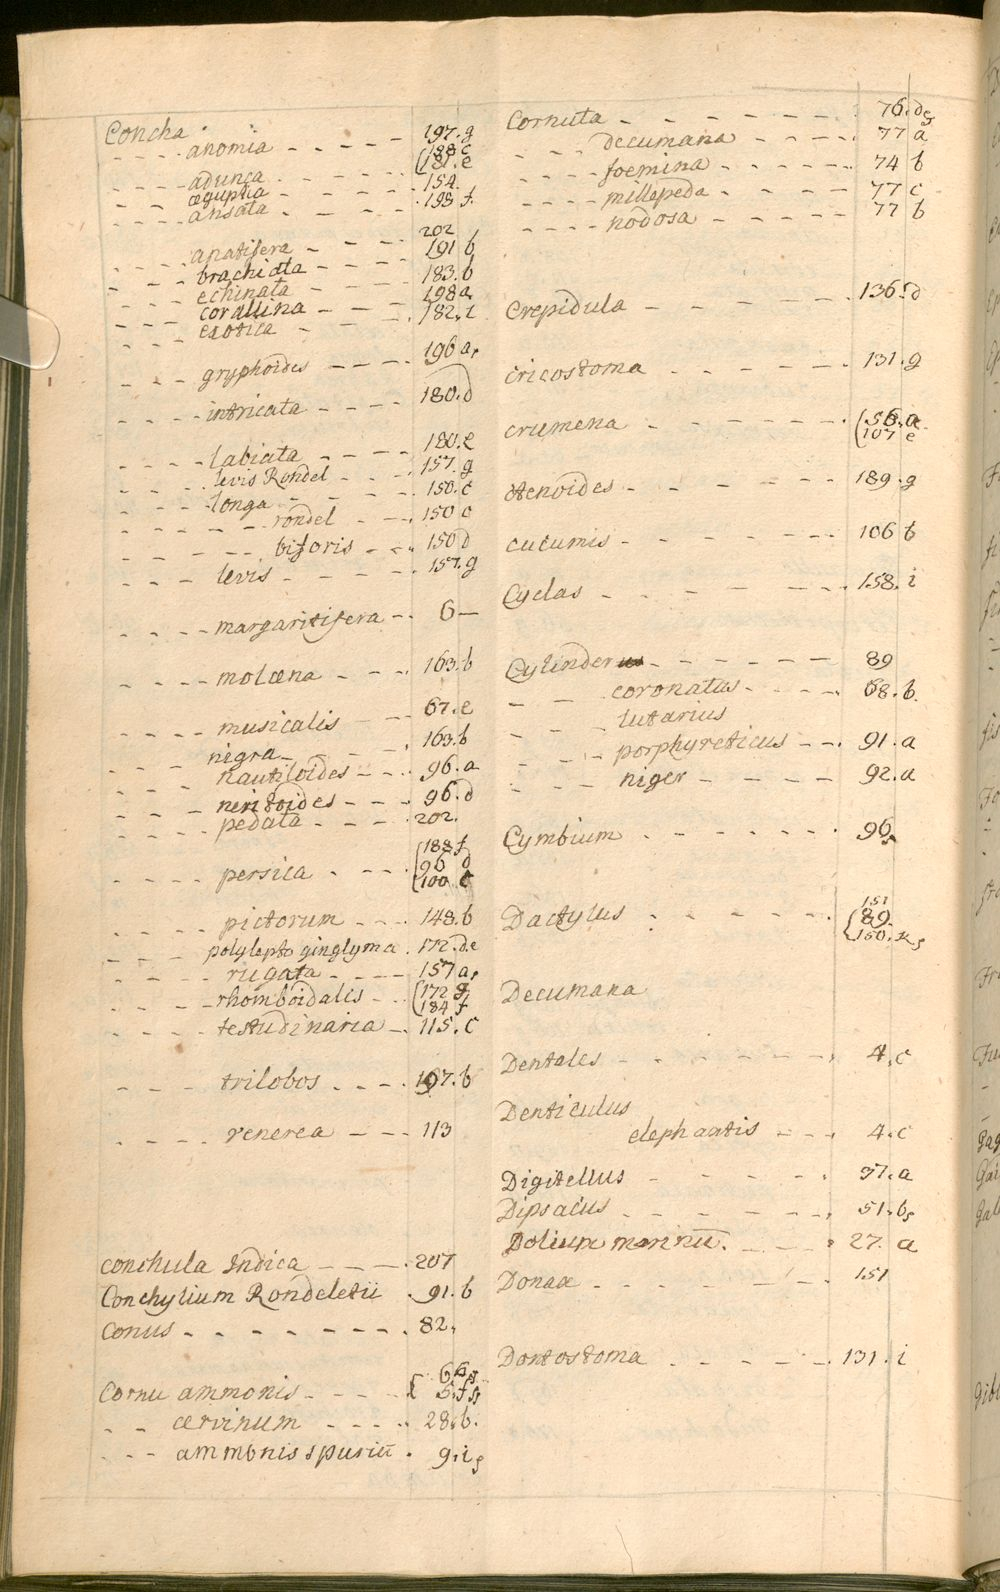 Concha - - - - - 197. g
- - - - anomia - - - - - (188 c
181. e
- - - - adunca - - - - 154.
- - - - æguptia - - - - 198 f.
- - - - ansata - - - -
202
- - - - anatifera - - - - 191 b
- - - - brachiata - - - - 183. b
- - - - echinata - - - - 198 a,
- - - - corallina - - - - 182. i
- - - - exotica - - - -
- - - - gryphoides - - - - 196 a,
- - - - intricata - - - - 180. d
- - - - labiata - - - - 180. e
- - - - levis Rondel - - - 157. g
- - - - longa - - - - 150. c
- - - - rondel - - - 150 c
- - - - biforis - - - 150 d
- - - - levis - - - - - 157. g
- - - - margaritifera - - 6 —
- - - - molæna - - - - 163. b
- - - - musicalis - - 67. e
- - - - nigra - 163. b
- - - - nautiloides - - - 96. a
- - - - neritoides - - - 96. d
- - - - pedata - - - - 202.
- - - - persica - - - - (188 f
96 d
100 c
- - - - pictorum - - - 148. b
- - - polylepto ginglyma. 172. de
- - - - rugata - - - - 157 a,
- - - - rhomboidalis - - (172 g
184 f
- - - - testudinaria - . 115. c
- - - trilobos - - - - 197. b
- - - - venerea - - - - 113
conchula Indica - - - - 207
Conchylium Rondeletii . 91. b
Conus - - - - - - - - 82.
Cornu ammonis - - - - { 66
5. f
- - cervinum - - - - 28. b.
- - - ammonis spuriū . 9. i
Cornuta - - - - - - 76. d
- - - decumana - - - - 77 a
- - - - foemina - - - - 74 b
- - - - millepeda - - - - 77 c
- - - - nodosa - - - - 77 b
Crepidula - - - - - - 136. d
cricostoma - - - - - 131. g
crumena - - - - - - - (56. a
107 e
ctenoides - - - - - - 189. g
cucumis - - - - - - - 106 b
Cyclas - - - - - - - 158. i
Cylinder - - - - - - 89
- - coronatus - - - - 68. b.
- - lutarius
- - - porphyreticus - - . 91. a
- - niger - - - - - 92. a
Cymbium - - - - - - 96
Dactylus - - - - - - 151
{ 89.
150. K
Decumana
Dentales - - - - - - 4. c
Denticulus
elephantis - - - 4. c
Digitellus - - - - - - 37. a
Dipsacus - - - - - - 51. b
Dolium marinū. - - - - 27. a
Donax - - - - - - - 151
Dontostoma - - - - - 131. i